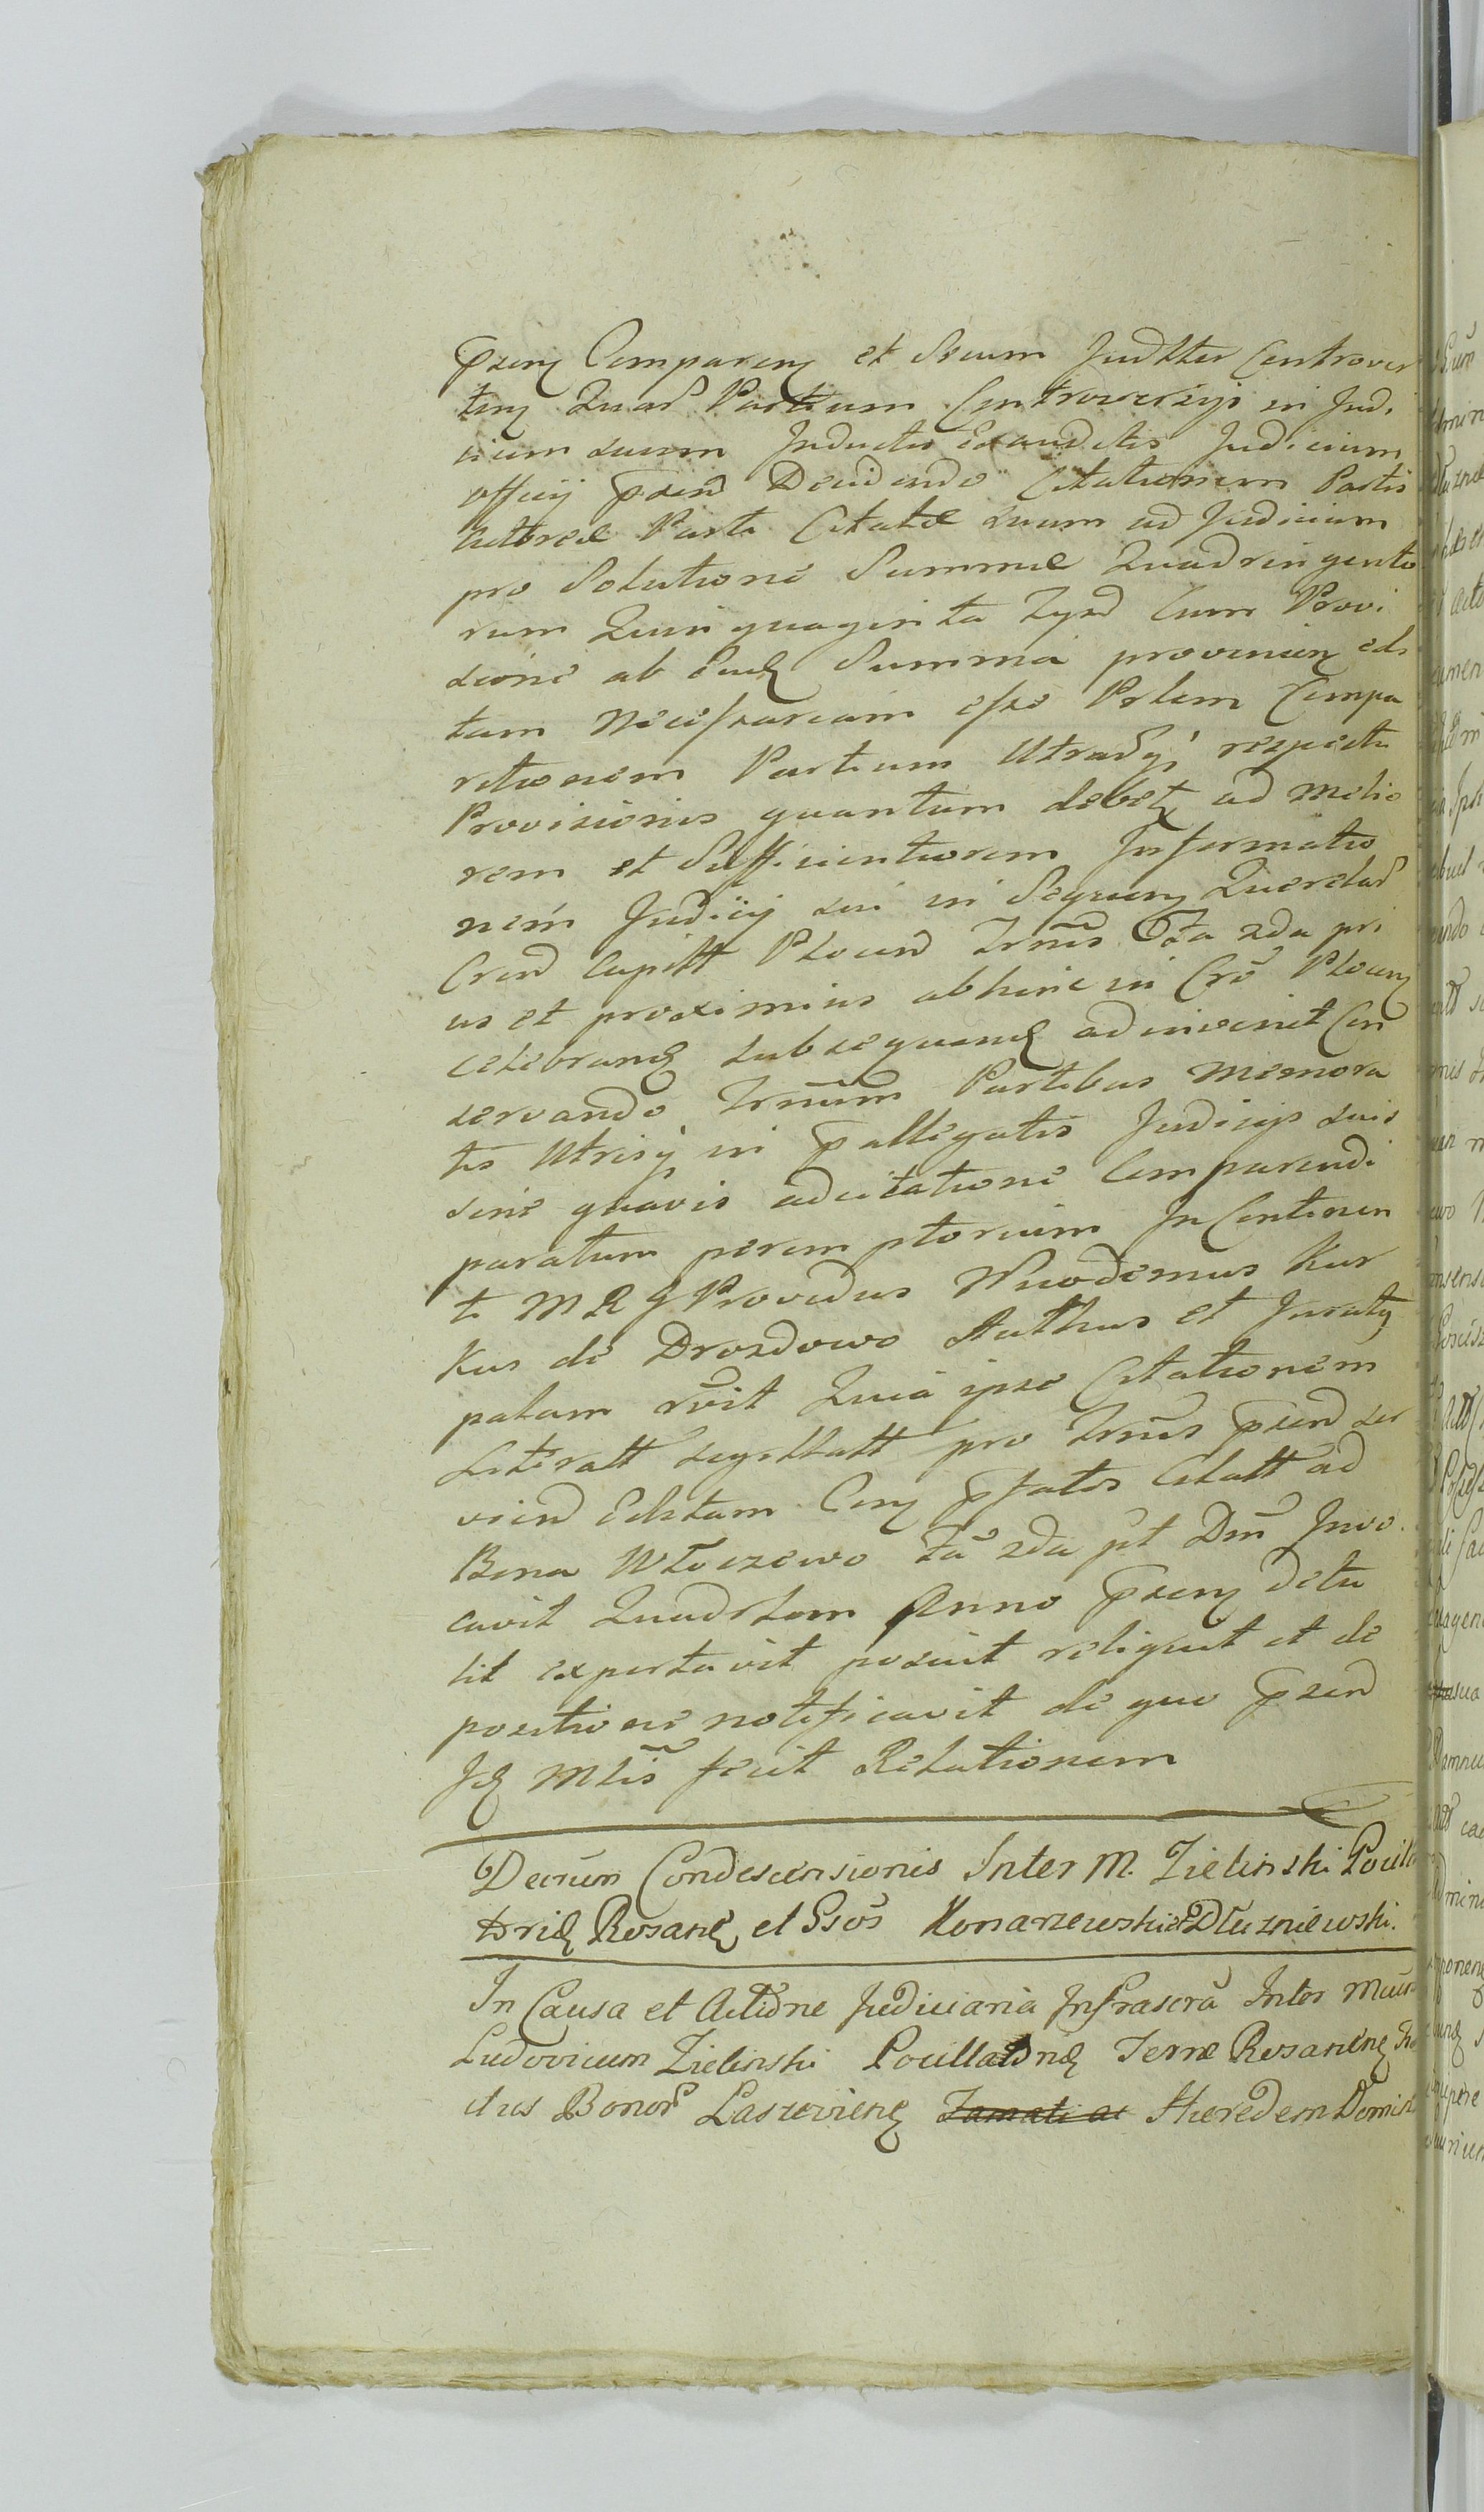 Prens Comparens et Secum Judlter Controver
tens Quar Partium Controversiis in Judi
cium suum Inductis Exauditis Judicium
officii prsens Decidendo Citationem Partis
Actoreæ Parti Citatæ suum ad Judicium
pro Solutione Summæ Quadringento
rum Quinquaginta Tynf Cum Provi
sione ab Ead Summa provenien eds
tam necessariam esse Prlem Compa
ritionem Partium Utrarq respectu
Provisionis quantum debet ad melio
rem et Sufficientiorem Informatio
nem Judicii sui in Sequen Querelar
Cren Capitt Plocen Trnis fra 2da pri
us et proximius abhinc in Cro Plocen
celebrand subsequend adinvenit Con
servando Trnum Partibus memora
tis Utrisq in pallegatis Judiciis suis
sine quavis adcitatione Comparendi
paratum peremptorium In Continen
ti M R G Providus Nicodemus Kur
kus de Drozdowo Authus et Juratus
palam rvit Quia ipse Citationem
Literatt sigillatt pro Trnis prsend ser
viend Edstam Cons pfatos Citatt ad
Bona Włoczewo fa 2da pt Dni Invo
cavit Quadrlem Anno prsens detu
lit exportavit posuit reliquit et de
positione notificavit de quo prsend
Jd Mlis fecit Relationem
Decrum Condescensionis Inter M. Zielinski Pocill
trid Rosanen et Gsos Konarzewski et Dłuzniewski.
In Causa et Actione Judiciaria Infrascra Inter Mcum
Ludovicum Zielinski Pocillat Terræ Rosanens
itus Bonor Laszewiens Hæredem Domin